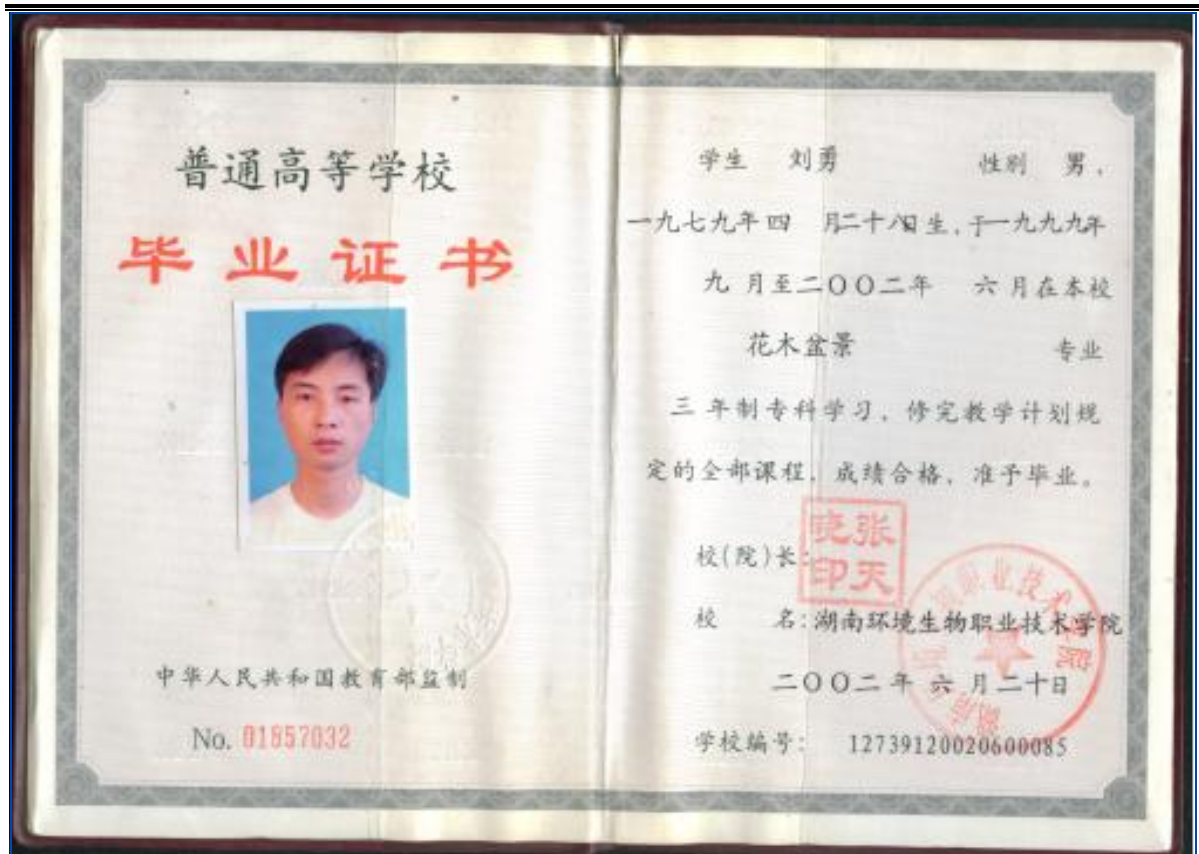 普通高等学校
毕业证书
中华人民共和国教育部监制
No. 01857032
学生 刘勇 性别 男，
一九七九年四 月二十八日生，于一九九九年
九 月至二〇〇二年 六 月在本校
花木盆景 专业
三 年制专科学习，修完教学计划规
定的全部课程，成绩合格，准予毕业。
校(院)长：
张天晓印
校 名：湖南环境生物职业技术学院
二〇〇二年 六 月二十日
学校编号： 12739120020600085